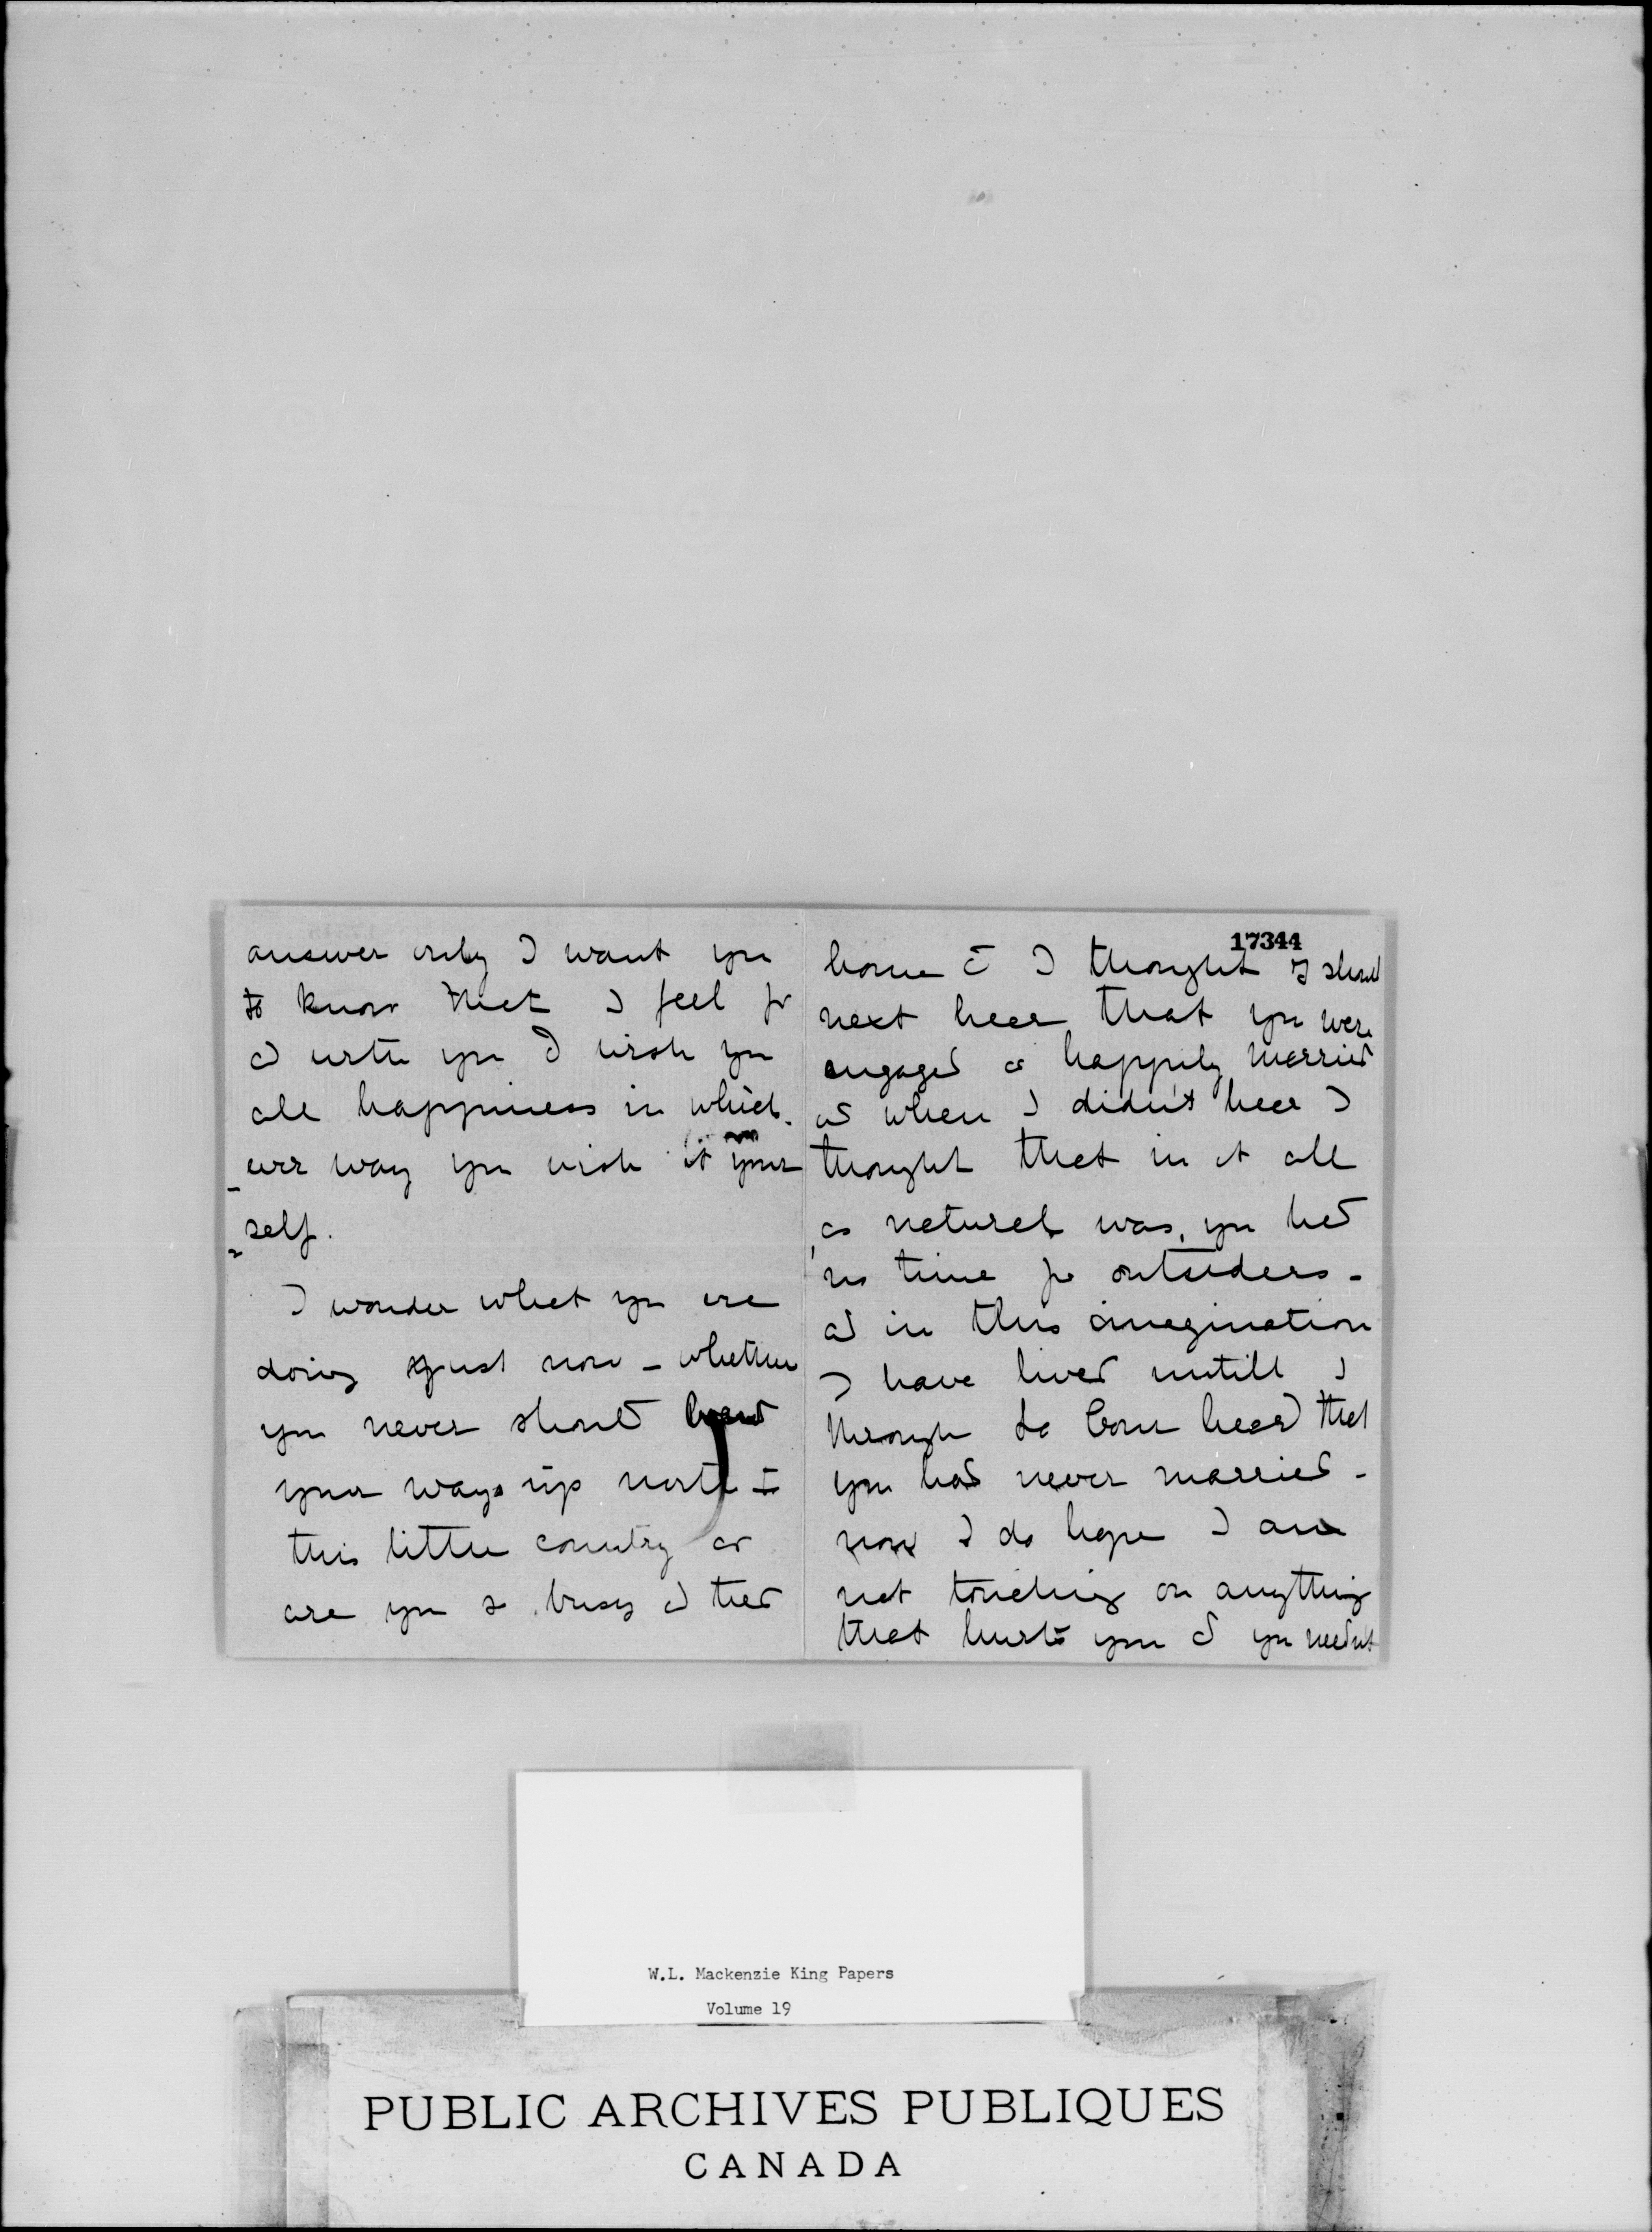 answer only I want you
to know that I feel for
& with you & wish you
all happiness in which-
-ever way you wish it your
=self.
I wonder what you are
doing just now - whether
you never should bend
your ways up north to
this little country or
are you so busy & tied
17344
home & I thought I should
next hear that you were
engaged or happily married
& when I didn't hear I
thought that in it all
as natural was, you had
no time for outsiders -
& in this imagination
I have lived untill I
through de hear that
you had never married -
now I do hope I am
not touching on anything
that hurts you & you needn't
W.L. Mackenzie King Papers
Volume 19
PUBLIC ARCHIVES PUBLIQUES
CANADA